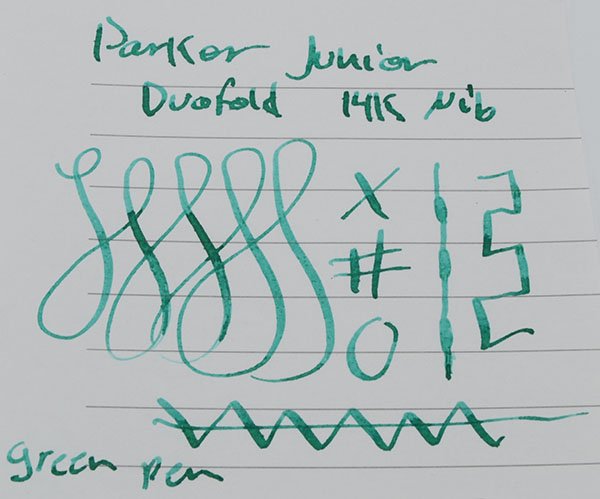 Parker Junior
Duofold 14K Nib
X
#
O
green pen